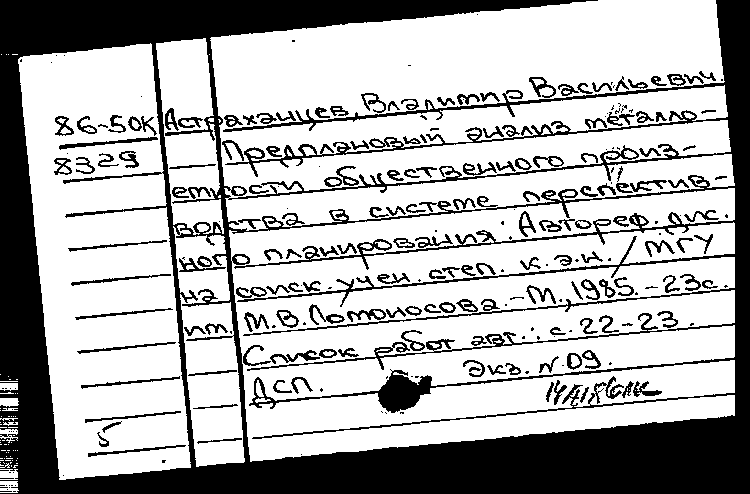 86-50К Астраханцев, Владимир Васильевич.
8329 Предплановый анализ металло-
емкости общественного произ-
водства в системе перспектив-
ного планирования: Автореф. дис.
на соиск. учен. степ. к.э.н. / МГУ
им. М.В.Ломоносова. - М., 1985. - 23с.
Список работ авт.: с. 22-23.
ДСП. Экз. N 09.
5